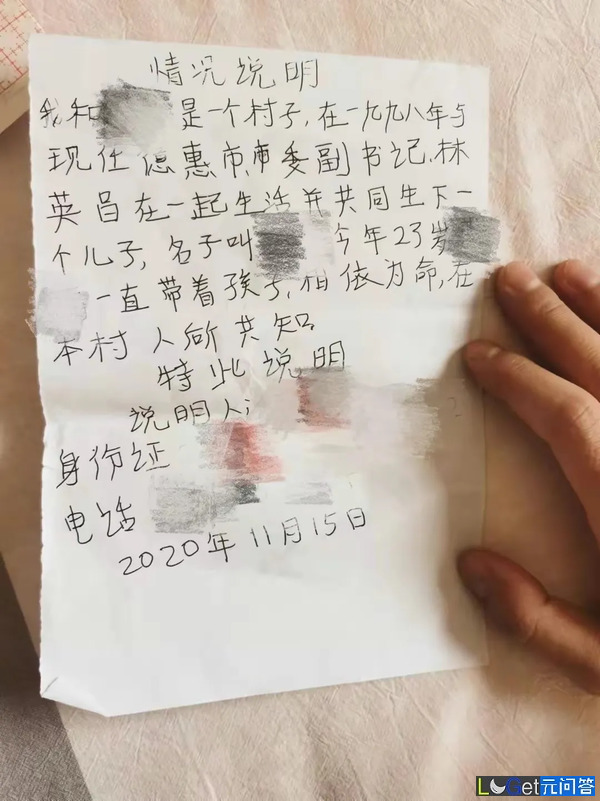 情况说明
我和 是一个村子,在一九九八年与
现任德惠市,市委副书记,林
英昌在一起生活并共同生下一
个儿子,名子叫 今年23岁
一直带着孩子,相依为命,在
本村人所共知
特此说明
说明人:
身份证
电话
2020年11月15日
LGet元问答